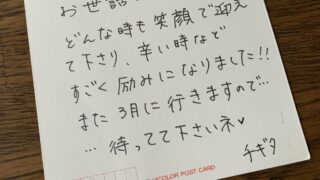 お世話
どんな時も笑顔で迎え
て下さり、辛い時など
すごく励みになりました!!
また3月に行きますので…
… 待ってて下さいネ♥
チギタ
COLOR POST CARD